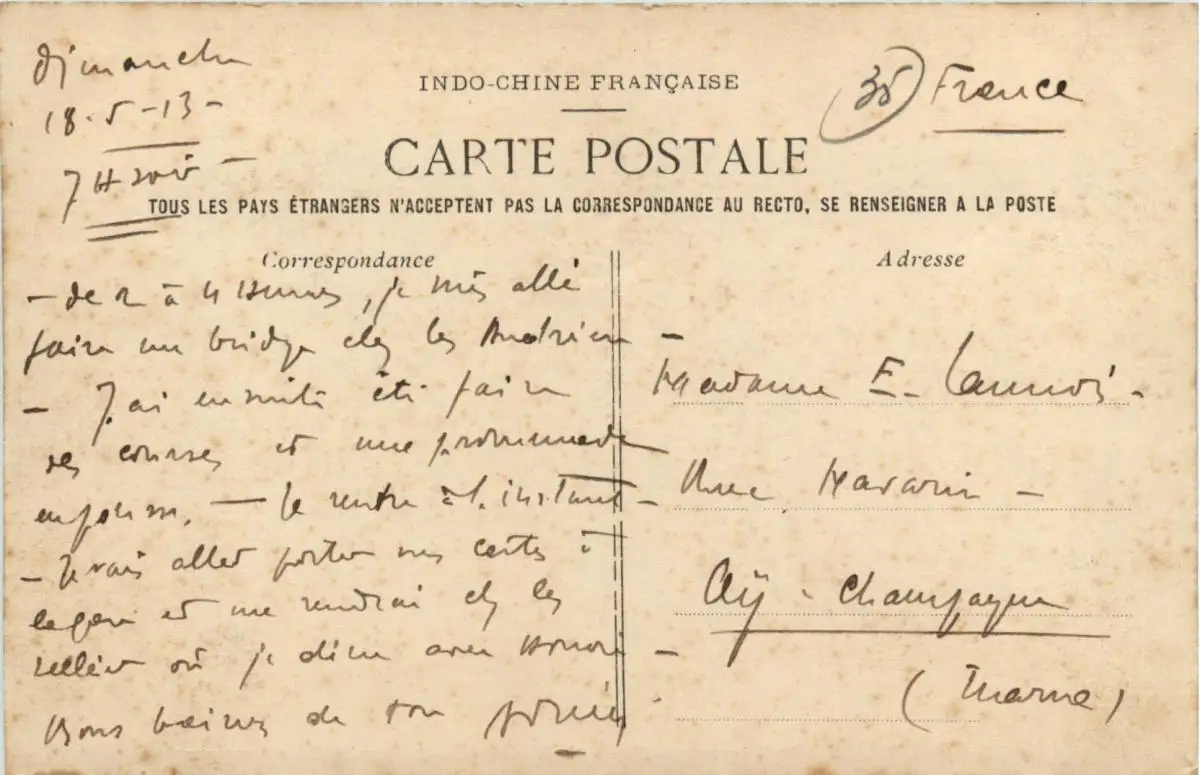 Dimanche
18-5-13-
7 H soir -
INDO-CHINE FRANÇAISE
35 France
CARTE POSTALE
TOUS LES PAYS ÉTRANGERS N'ACCEPTENT PAS LA CORRESPONDANCE AU RECTO, SE RENSEIGNER A LA POSTE
Correspondance
- de 2 à 4 Heures, je suis allé
faire un bridge chez les Andrieu -
- J'ai ensuite été faire
des courses et une promenade
en - Je rentre à l'instant -
- Je vais aller porter mes cartes à
la gare et me rendrai chez les
où je dîne avec Honoré -
Bons baisers de ton
Adresse
Madame E. Launois -
Rue -
Aÿ - Champagne
(Marne)